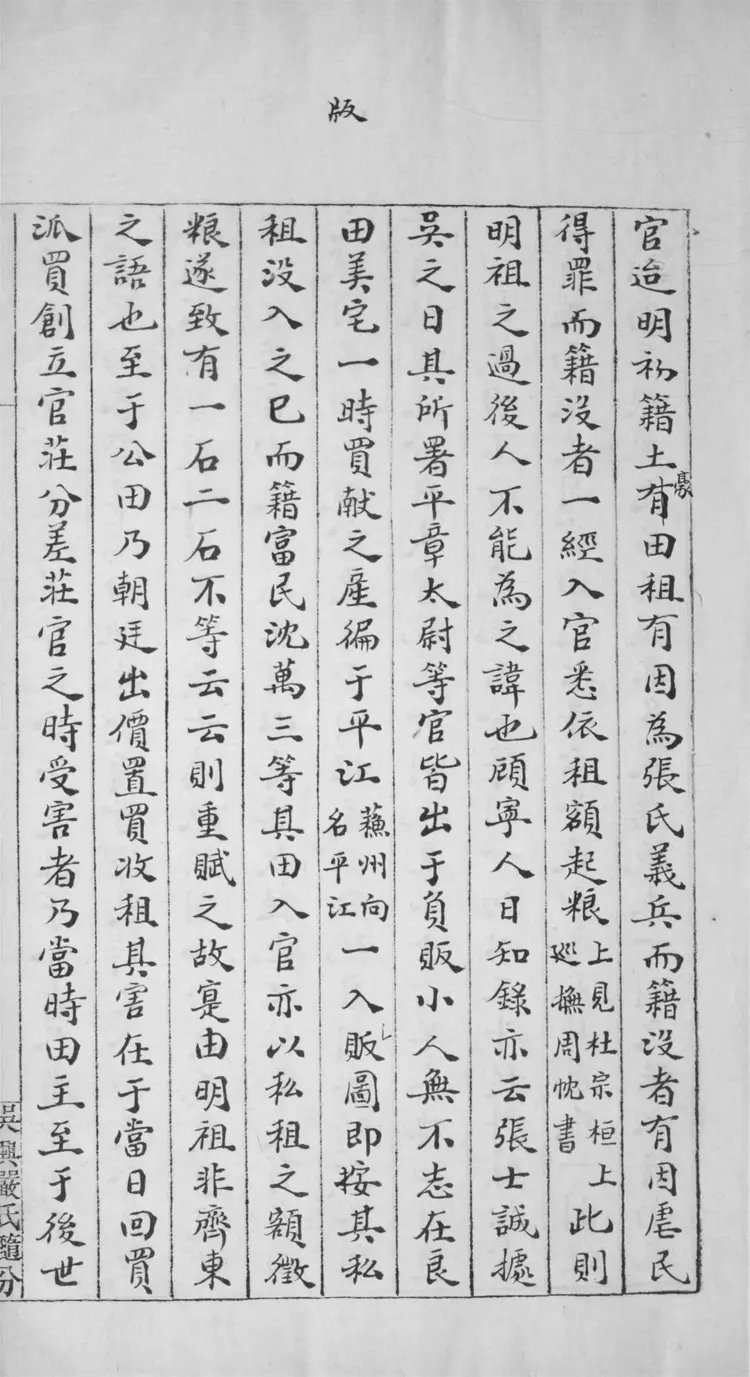 版
官迨明初籍土豪有田租有因為張氏義兵而籍沒者有因虐民
得罪而籍沒者一經入官悉依租額起粮上見杜宗桓上巡撫周忱書此則
明祖之過後人不能為之諱也顧寧人日知錄亦云張士誠據
吳之日其所署平章太尉等官皆出于負販小人無不志在良
田美宅一時買献之產徧于平江蘓州向名平江一入販圖即按其私
租沒入之已而籍富民沈萬三等其田入官亦以私租之額徵
粮遂致有一石二石不等云云則重賦之故寔由明祖非齊東
之語也至于公田乃朝廷出價置買收租其害在于當日回買
派買創立官莊分差莊官之時受害者乃當時田主至于後世
吳興嚴氏隨分